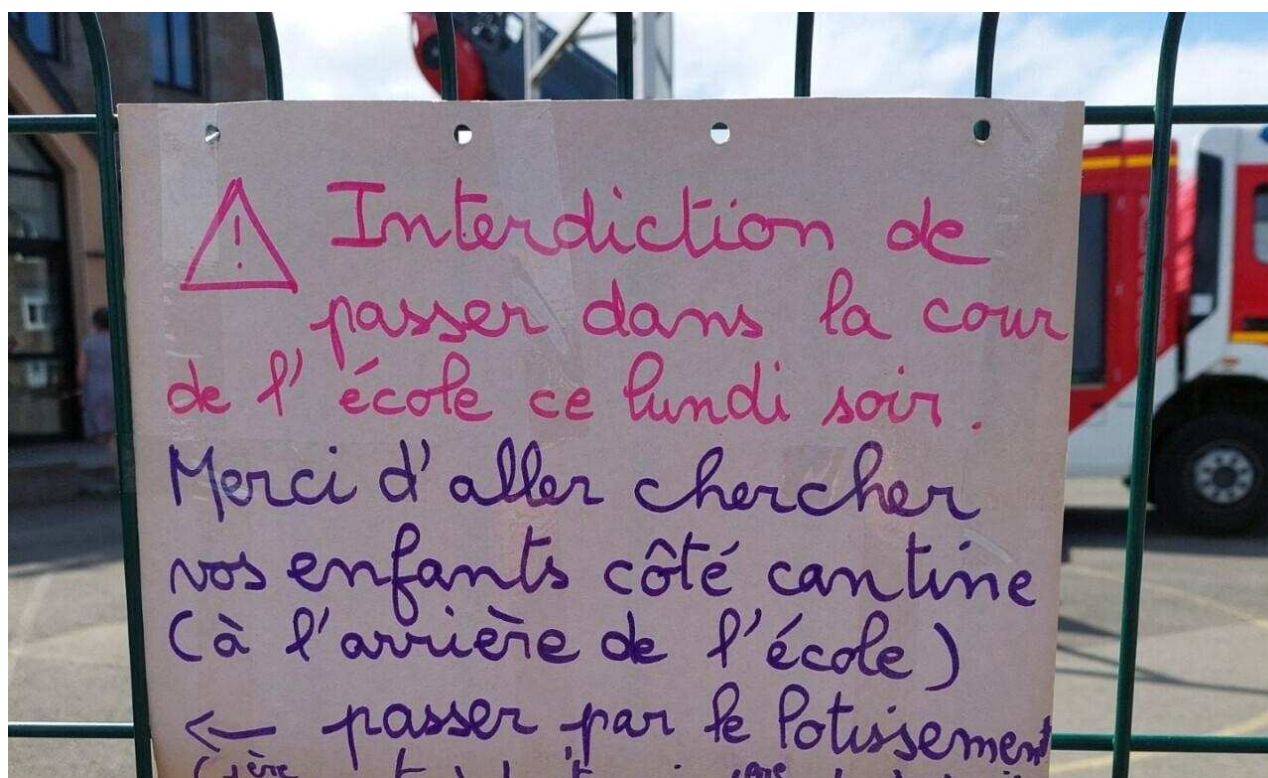 Interdiction de
passer dans la cour
de l'école ce lundi soir.
Merci d'aller chercher
vos enfants côté cantine
(à l'arrière de l'école)
← passer par le lotissement
(1ère